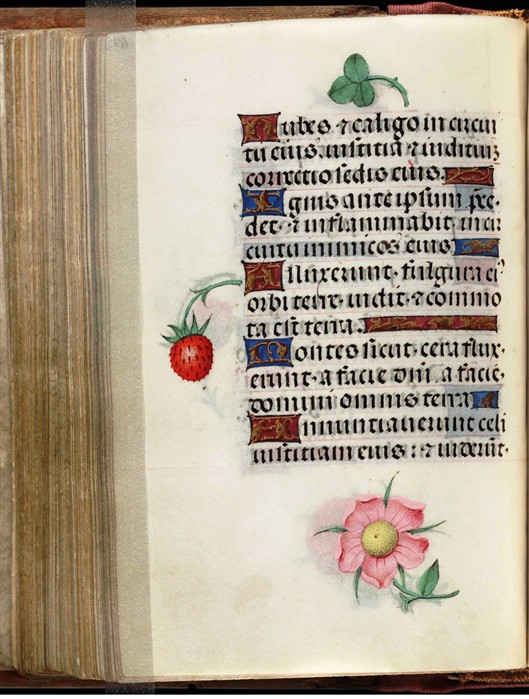 Nubes ⁊ caligo in circui
tu eius. iustitia ⁊ iuditiuz
correctio sedis eius.
Ignis ante ipsum p̄re-
det. ⁊ inflammabit in cir
cuitu inimicos eius
Alluxerunt. fulgura ei⁹
orbi terre. uidit. ⁊ commo
ta est terra.
Montes sicut. cera flux-
erunt. a facie dn̄i. a facie.
domini omnis terra
Annuntiauerunt celi
iustitiam eius: ⁊ uiderūt.